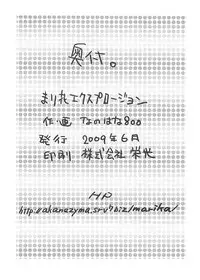 奥付。
まりれエクスプロージョン
作・画 なのはな800
発行 2009年6月
印刷 株式会社 栄光
HP
http://akanazyma.sru7.biz/marika/